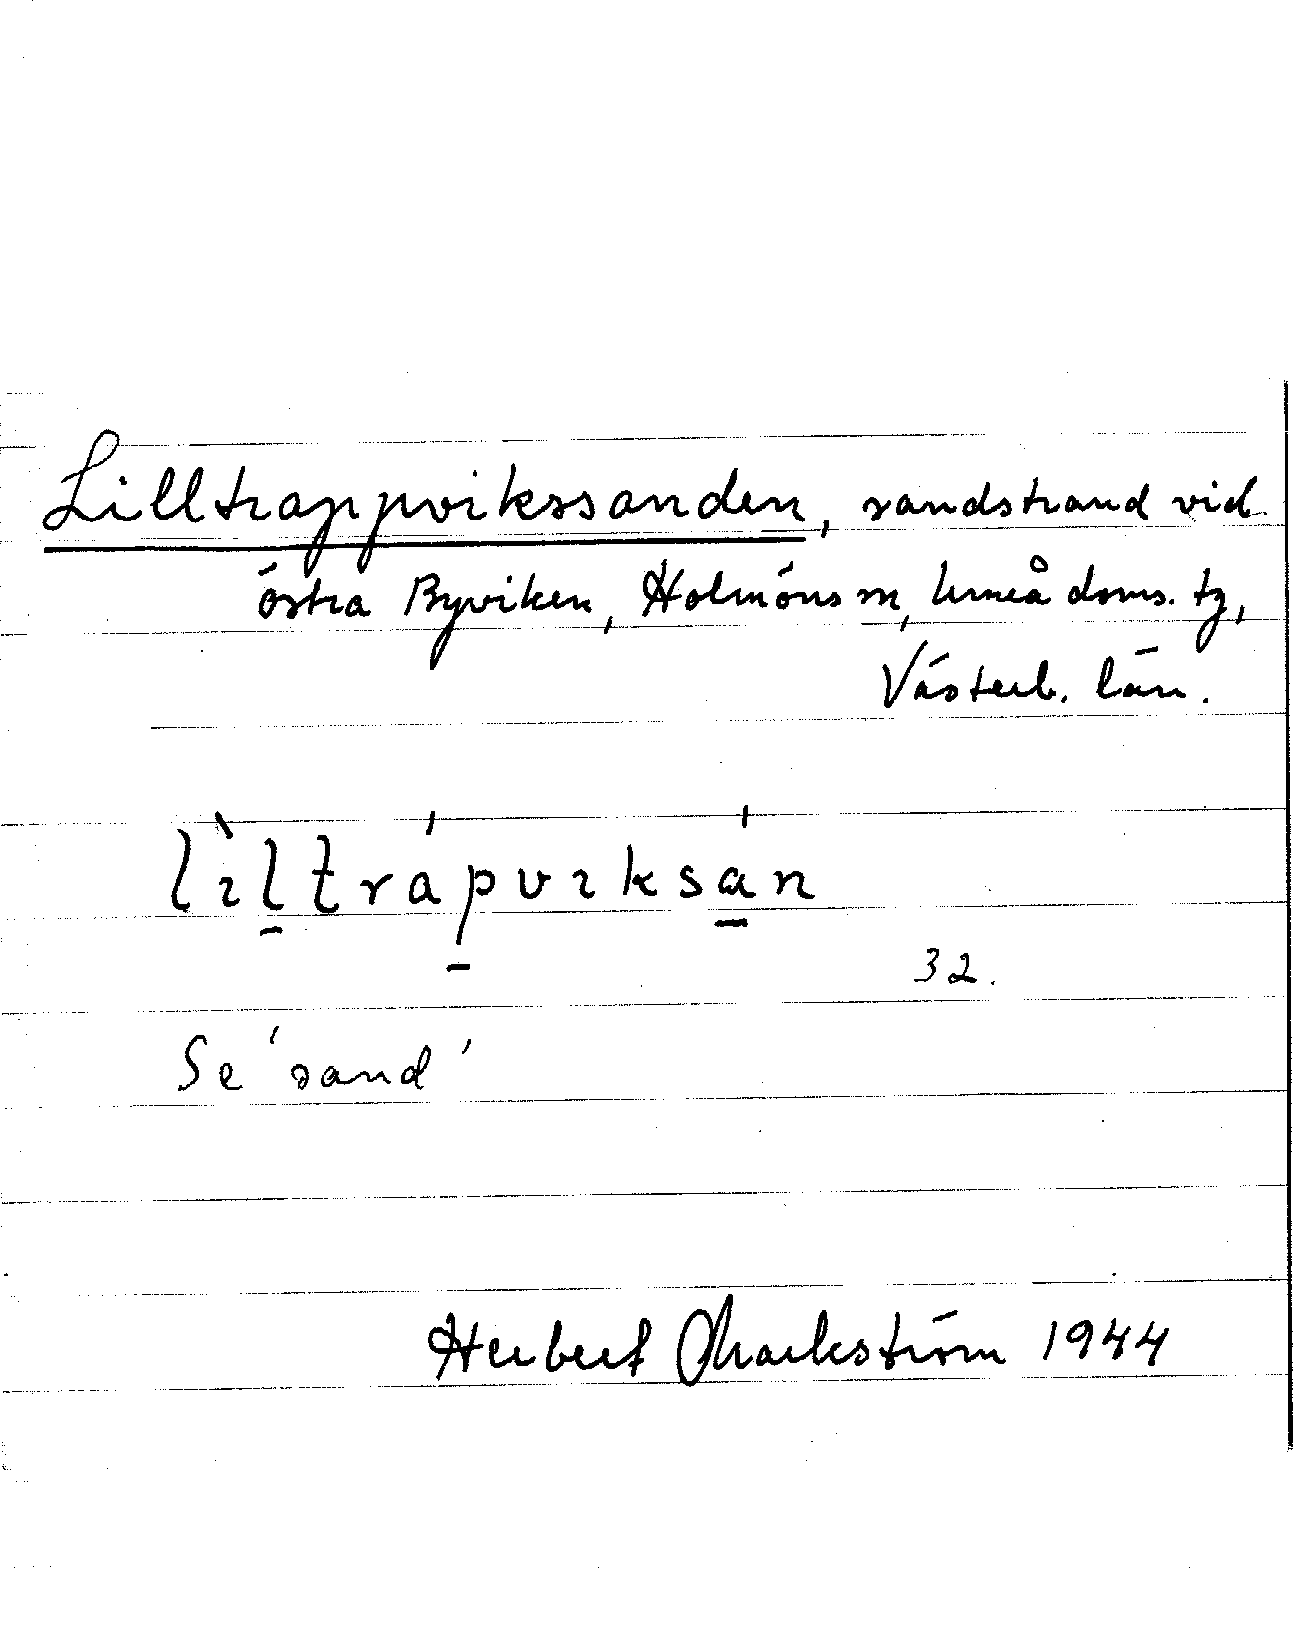 Lilltrappvikssanden, sandstrand vid
östra Byviken, Holmöns sn, Umeå doms. tg,
Västerb. län.
lìltrápvıksán
32.
Se 'sand'
Herbert Markström 1944